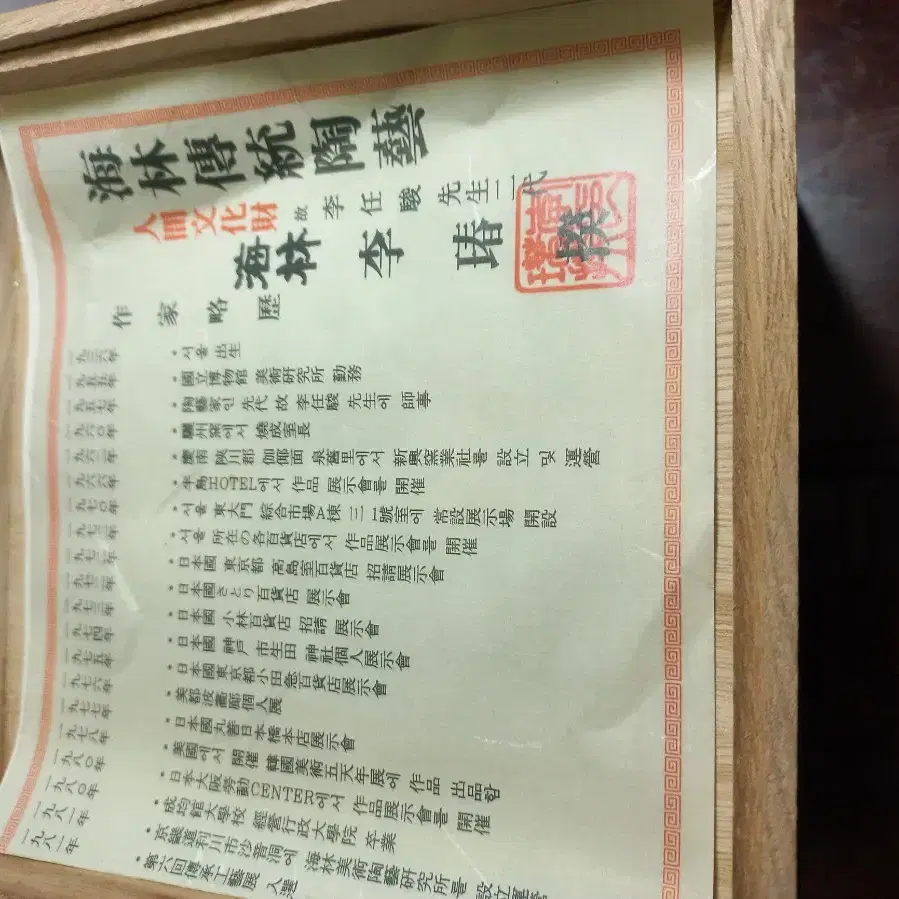 海林傳統陶藝
人間文化財 故 李任駿 先生 二代
海林 李 瑃 撰
作家略歷
一九三六年 • 서울 出生
一九五五年 • 國立博物館 美術硏究所 勤務
一九五七年 • 陶藝家인 先代 故 李任駿 先生에 師事
一九六〇年 • 驪州窯에서 燒成室長
一九六二年 • 慶南 陜川郡 伽倻面 泉舊里에서 新興窯業社를 設立 및 運營
一九六六年 • 半島HOTEL에서 作品 展示會를 開催
一九七〇年 • 서울 東大門 綜合市場A棟 三一號室에 常設展示場 開設
一九七二年 • 서울 所在の各百貨店에서 作品展示會를 開催
一九七二年 • 日本國 東京都 高島室百貨店 招請展示會
一九七二年 • 日本國さとり百貨店 展示會
一九七三年 • 日本國 小林百貨店 招請 展示會
一九七四年 • 日本國 神戶 市生田 神社個人展示會
一九七五年 • 日本國東京都小田急百貨店展示會
一九七六年 • 美都波畵廊個人展
一九七七年 • 日本國丸善日本橋本店展示會
一九七八年 • 美國에서 開催 韓國美術五天年展에 作品 出品함
一九八〇年 • 日本大阪勞動CENTER에서 作品展示會를 開催
一九八〇年 • 成均館大學校 經營行政大學院 卒業
一九八一年 • 京畿道利川市沙音洞에 海林美術陶藝硏究所를 設立
一九八一年 • 第六回傳承工藝展 入選